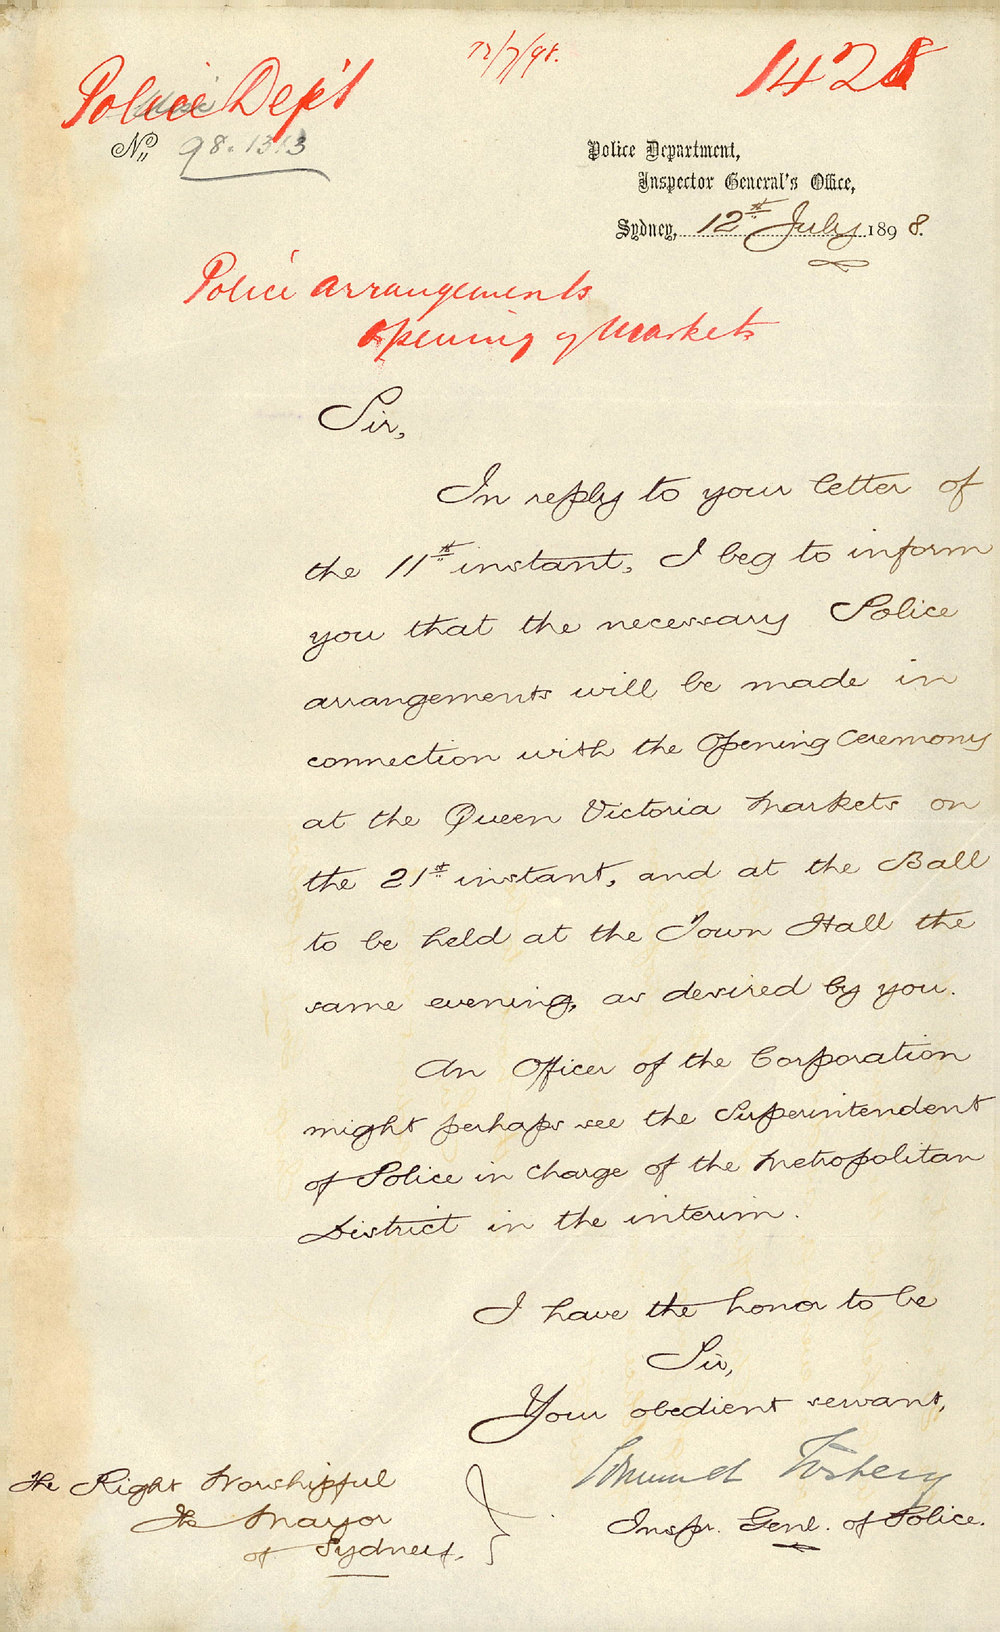 12/7/98.
1428
Police Dep't
No. 98.1313
Police Department,
Inspector General's Office,
Sydney, 12th July 1898.
Police arrangements
Opening of Markets
Sir,
In reply to your letter of
the 11th instant, I beg to inform
you that the necessary Police
arrangements will be made in
connection with the Opening Ceremony
at the Queen Victoria Markets on
the 21st instant, and at the Ball
to be held at the Town Hall the
same evening, as desired by you.
An Officer of the Corporation
might perhaps see the Superintendent
of Police in charge of the Metropolitan
District in the interim.
I have the honor to be
Sir,
Your obedient servant,
Edmund Fosbery
Inspr. Genl. of Police.
The Right Worshipful
The Mayor
of Sydney.